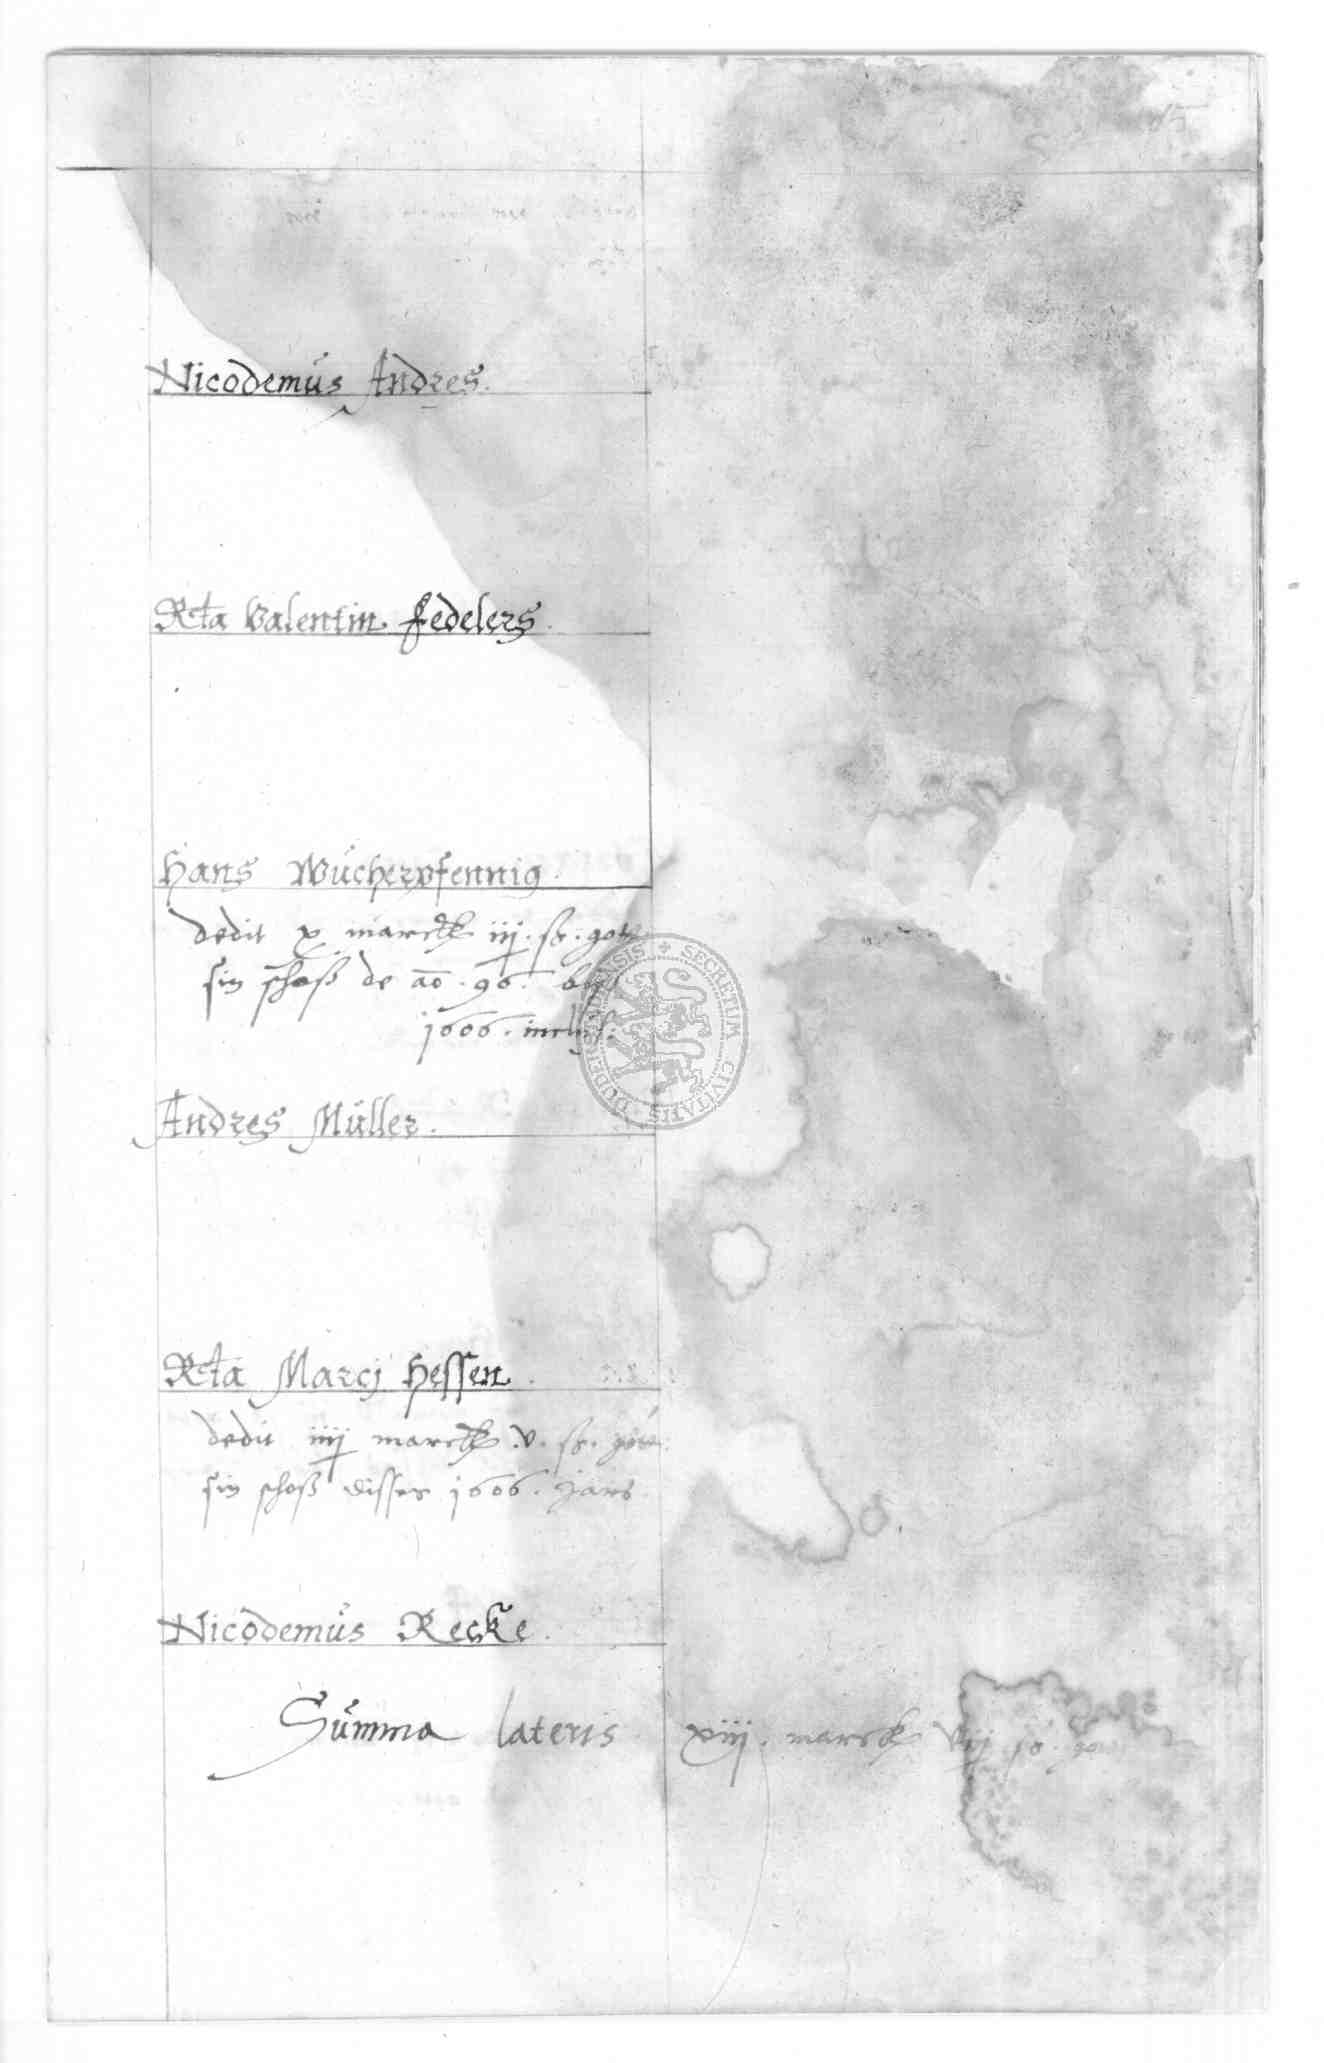 Nicodemus Andres.
Rcta Valentin Fedelers.
Hans Wucherpfennig.
dedit x marck iiij. ß. gott
sin schoß de ao. 96. biß
1606. inclus.
Andres Müller.
Rcta Marci Hessen.
dedit iiij marck v. ß. gott
sin schoß disses 1606. jars
Nicodemus Recke.
Summa lateris xiiij. marck
SECRETUM CIVITATIS DUDERSTADENSIS